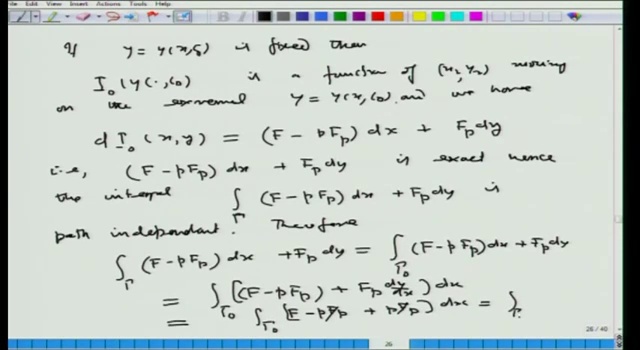 File Edit View Insert Actions Tools Help
If y = y(x, ζ) is fixed then
I₀(y(·, ζ₀) is a function of (x₂, y₂) moving
on the extremal y = y(x, ζ₀) and we have
dI₀(x, y) = (F - pFₚ) dx + Fₚdy
i.e., (F - pFₚ) dx + Fₚdy is exact hence
the integral ∫_Γ (F - pFₚ) dx + Fₚdy is
path independant. Therefore
∫_Γ (F - pFₚ) dx + Fₚdy = ∫_Γ₀ (F - pFₚ)dx + Fₚdy
= ∫_Γ₀ [(F - pFₚ) + Fₚ dy/dx] dx
= ∫_Γ₀ [F - pFₚ + pFₚ] dx = ∫_Γ₀
26 / 40
26